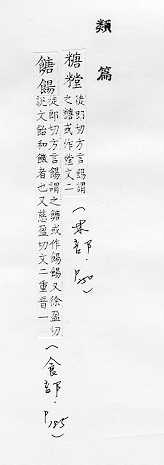 類篇
糖糛 徒郎切方言餳謂
之糖或作糛文二
(米部.P250)
餹餳 徒郎切方言餳謂之餹或作餳餳又徐盈切
說文飴和饊者也又慈盈切文二重音一
(食部.P185)